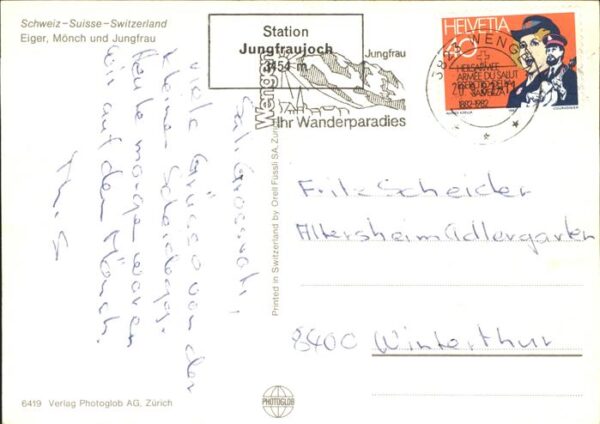 Schweiz–Suisse–Switzerland
Eiger, Mönch und Jungfrau
Station
Jungfraujoch
3454 m
Jungfrau
Wengen
Ihr Wanderparadies
3823 WENGEN
HELVETIA
40
HEILSARMEE
ARMÉE DU SALUT
1882-1982
COURVOISIER
viele Grüsse von der
kleinen Scheidegg.
Heute morgen waren
wir auf dem Mönch.
Fritz Scheider
Altersheim Adlergarten
8400 Winterthur
Printed in Switzerland by Orell Füssli SA, Zürich
6419 Verlag Photoglob AG, Zürich
PHOTOGLOB